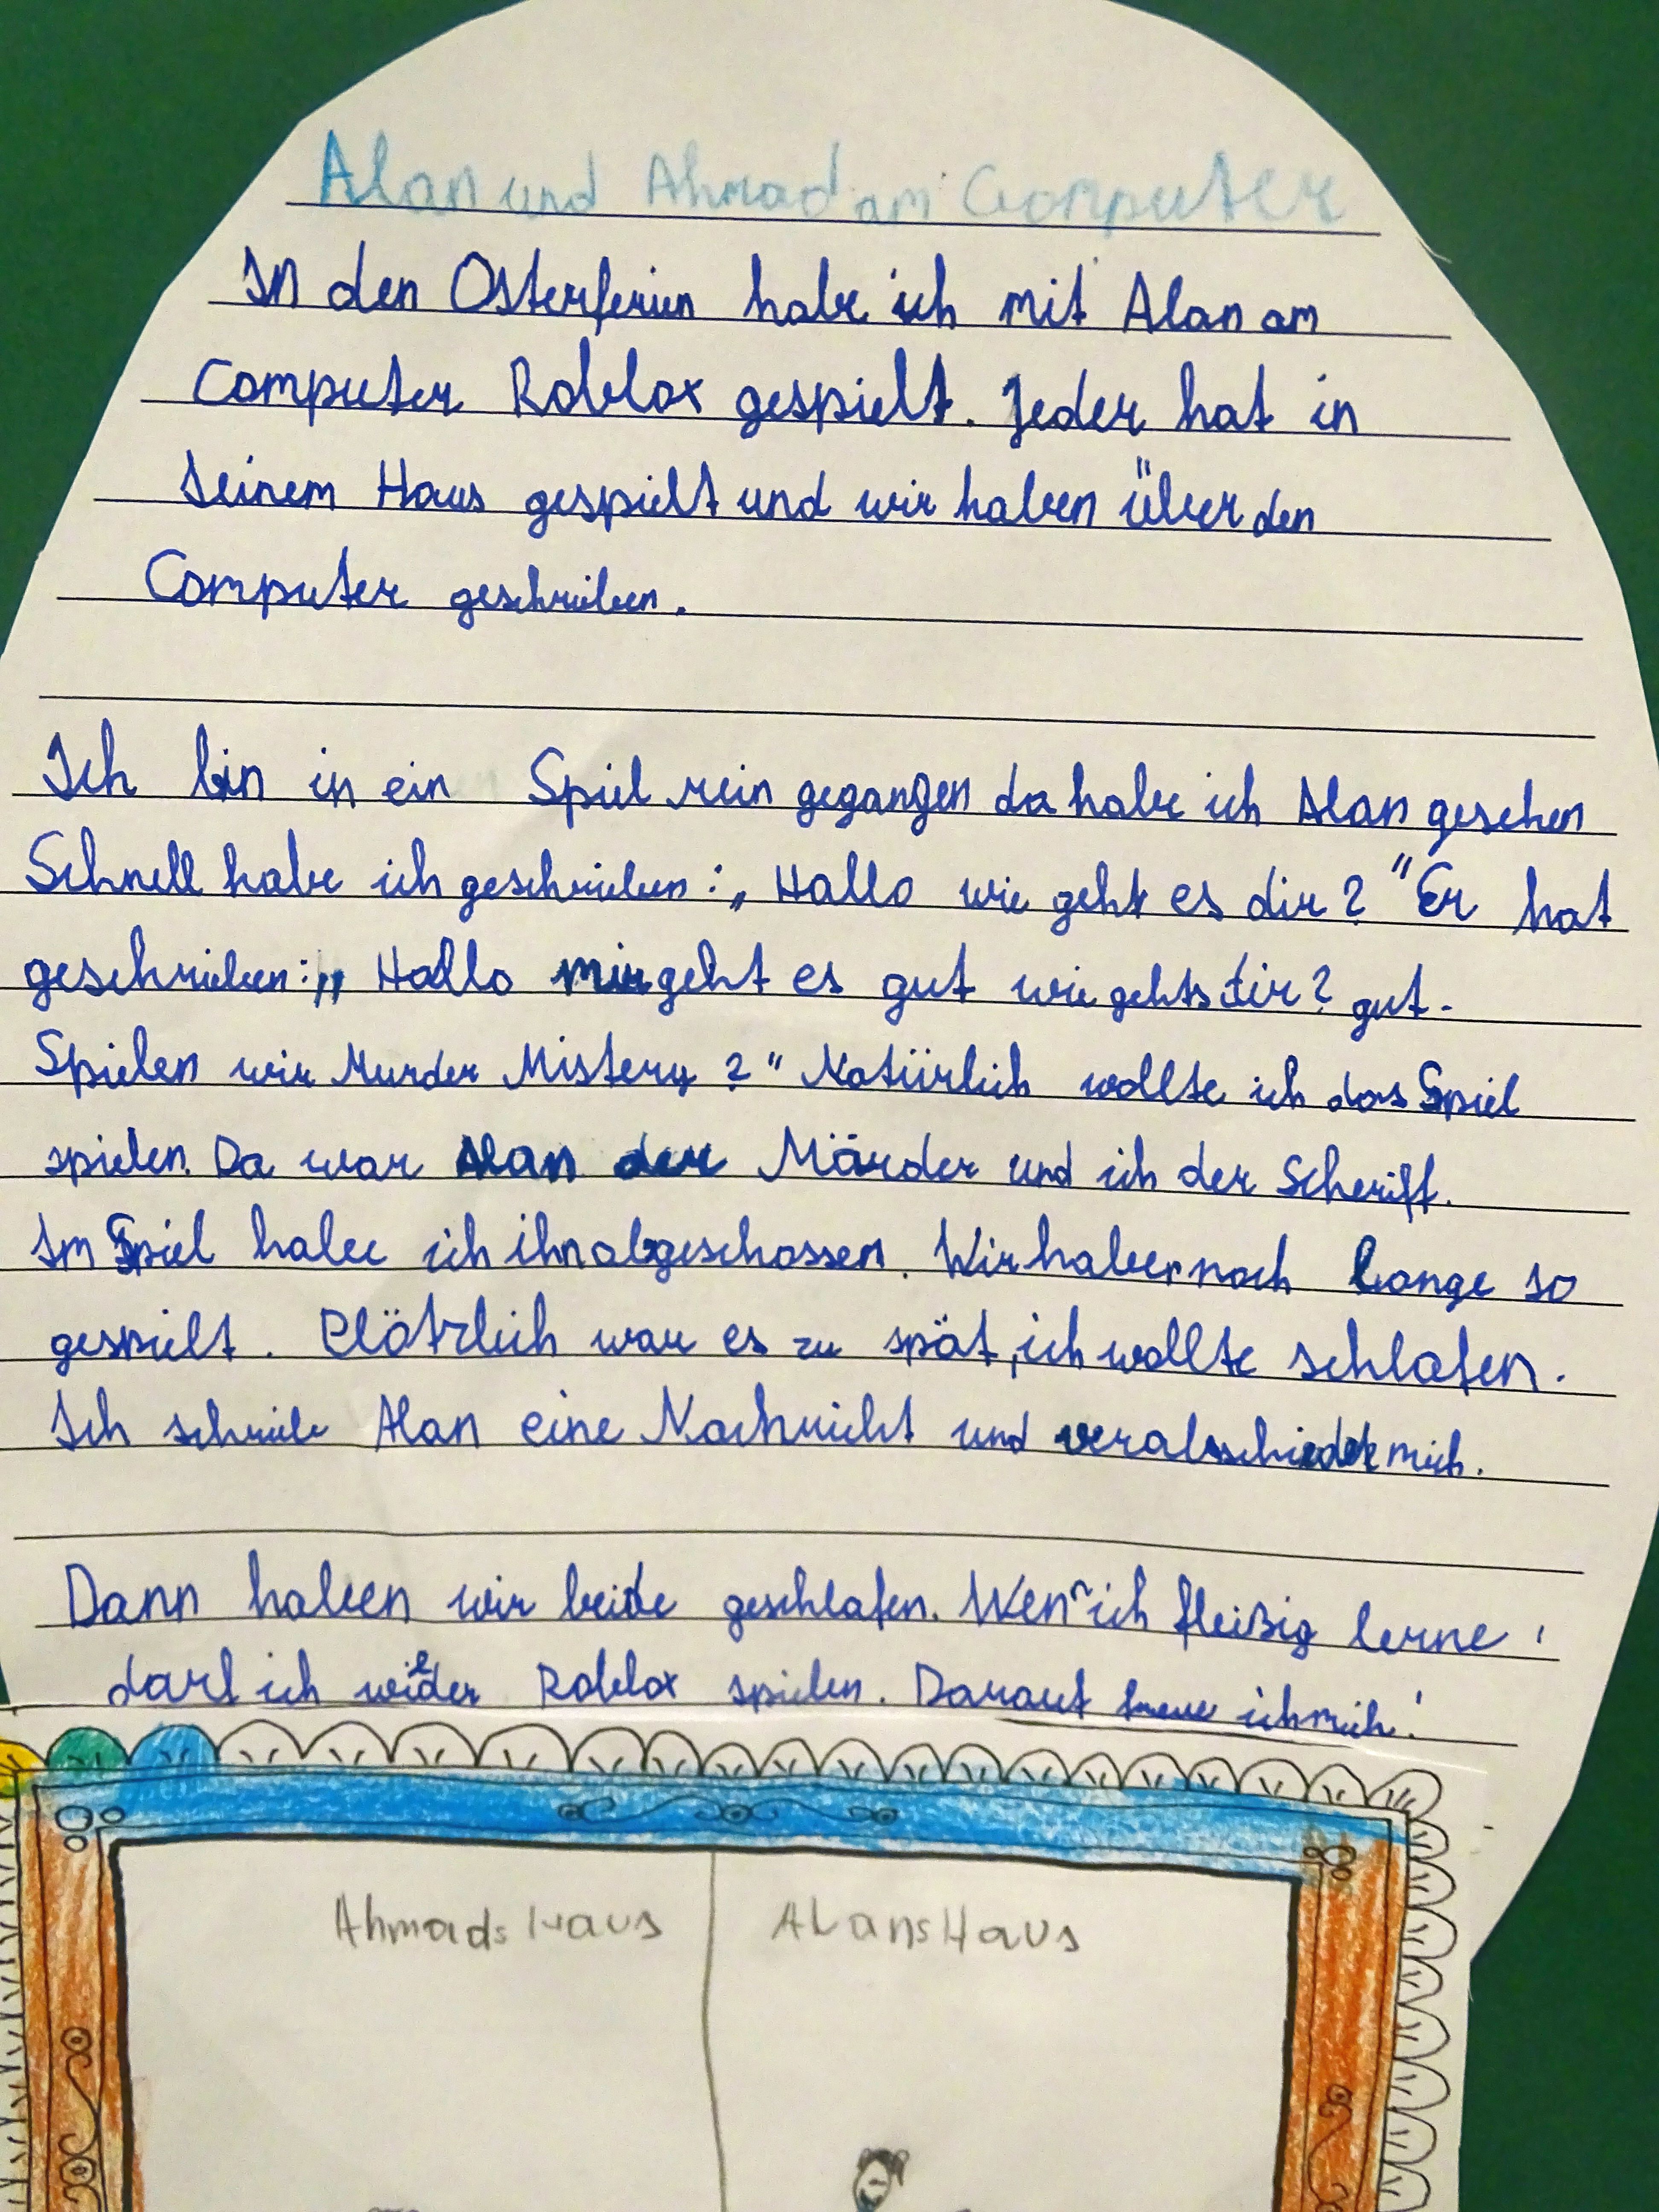 Alan und Ahmad am Computer
In den Osterferien habe ich mit Alan am
Computer Roblox gespielt. Jeder hat in
seinem Haus gespielt und wir haben über den
Computer geschrieben.
Ich bin in ein Spiel rein gegangen da habe ich Alan gesehen
Schnell habe ich geschrieben: „Hallo wie geht es dir?" Er hat
geschrieben: „Hallo mir geht es gut wie gehts dir? gut.
Spielen wir Murder Mistery?" Natürlich wollte ich das Spiel
spielen. Da war Alan der Mörder und ich der Scheriff.
Im Spiel habe ich ihn abgeschossen. Wir haben noch lange so
gespielt. Plötzlich war es zu spät, ich wollte schlafen.
Ich schrieb Alan eine Nachricht und verabschiedete mich.
Dann haben wir beide geschlafen. Wenn ich fleißig lerne,
darf ich wieder Roblox spielen. Darauf freue ich mich!
Ahmads Haus Alans Haus